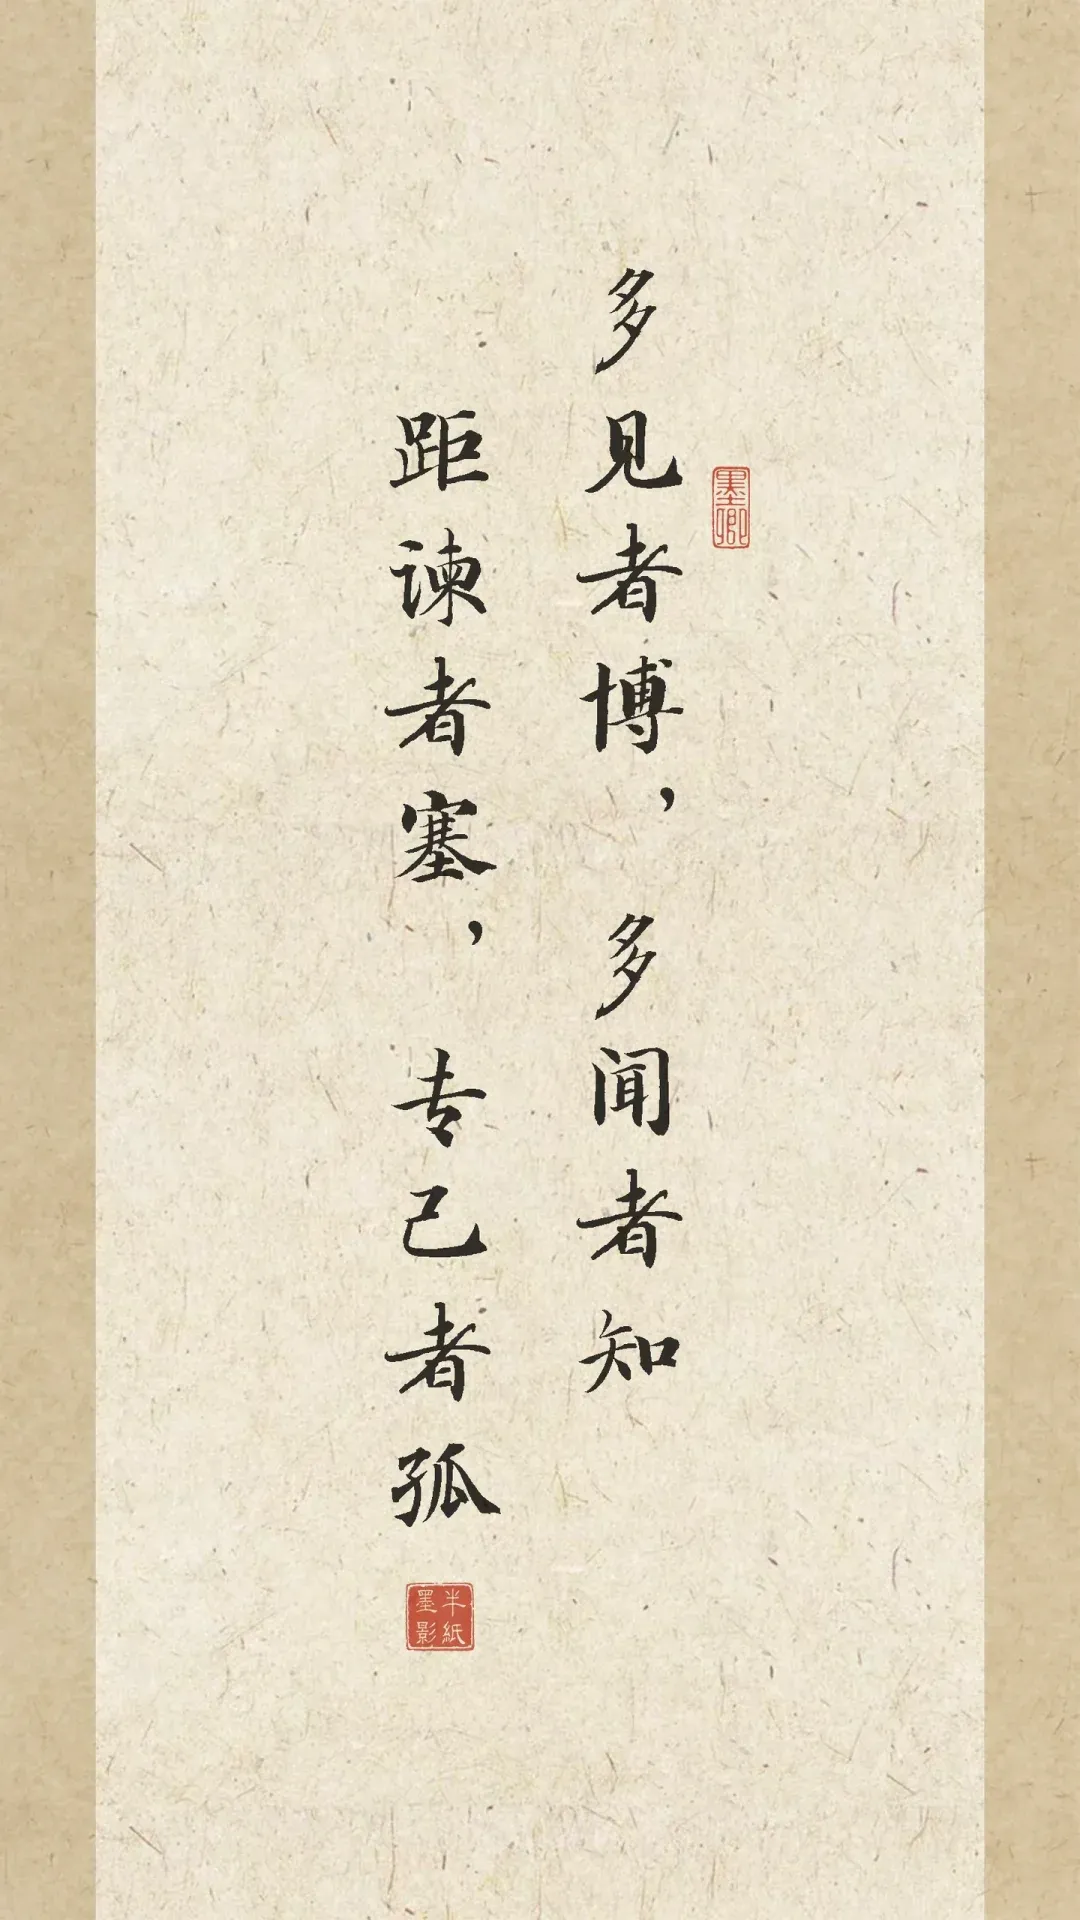 多见者博，多闻者知
距谏者塞，专己者孤
墨卿
半紙墨影